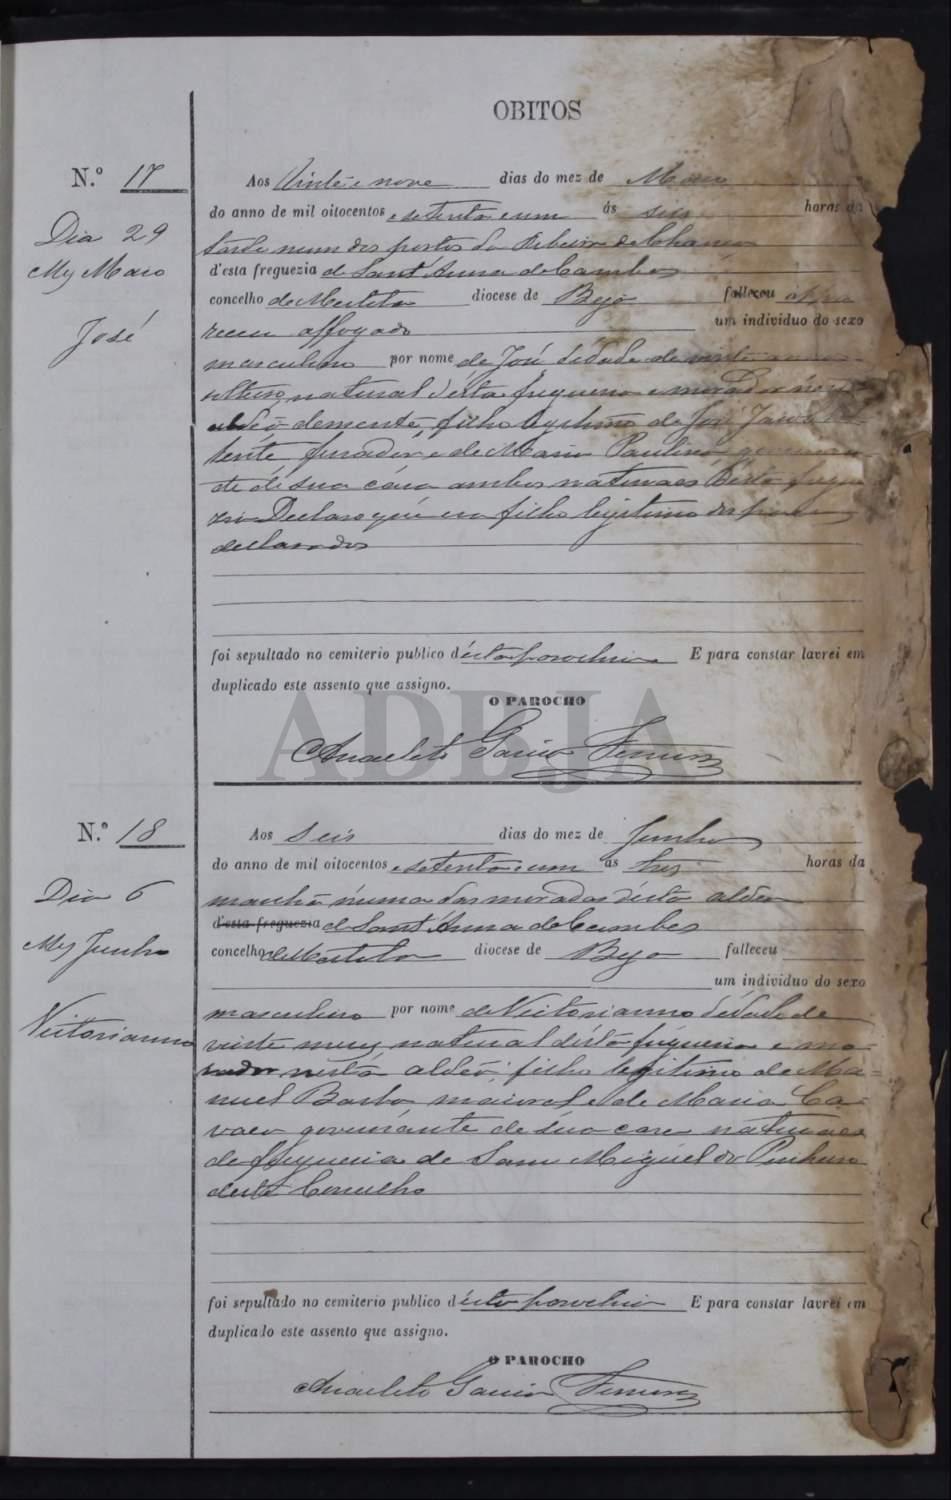 OBITOS
N.º 17
Dia 29
Mez Maio
José
Aos Vinte e nove dias do mez de Maio
do anno de mil oitocentos e setenta e um ás seis horas da
tarde num dos portos da Ribeira de Chança
d'esta freguezia de Sant'Anna de Cambas
concelho de Mertola diocese de Beja falleceu appa
receu affogado um individuo do sexo
masculino por nome de José d'edade de vinte annos
solteiro, natural d'esta freguezia e morador nésta
aldêa demente, filho legitimo de José
e de Maria Paulina, governan
te de sua cáza ambos naturaes désta fregue
zia Declaro que era filho legitimo dos
declarados
foi sepultado no cemiterio publico d'ésta parochia E para constar lavrei em
duplicado este assento que assigno.
O PAROCHO
Anacleto Garcia
ADBJA
N.º 18
Dia 6
Mez Junho
Victorianno
Aos Seis dias do mez de Junho
do anno de mil oitocentos e setenta e um ás tres horas da
manhã n'uma das moradas désta aldêa
d'esta freguezia de Sant'Anna de Cambas
concelho de Mertola diocese de Beja falleceu
um individuo do sexo
masculino por nome de Victorianno d'edade de
vinte mezes natural d'ésta freguezia e mo-
rador nésta aldêa, filho legitimo de Ma=
nuel Barbo, maioral e de Maria Ca-
vaco governante de súa caza naturaes
da freguezia de Sam Miguel do Pinheiro
deste Concelho
foi sepultado no cemiterio publico d'ésta parochia E para constar lavrei em
duplicado este assento que assigno.
O PAROCHO
Anacleto Garcia